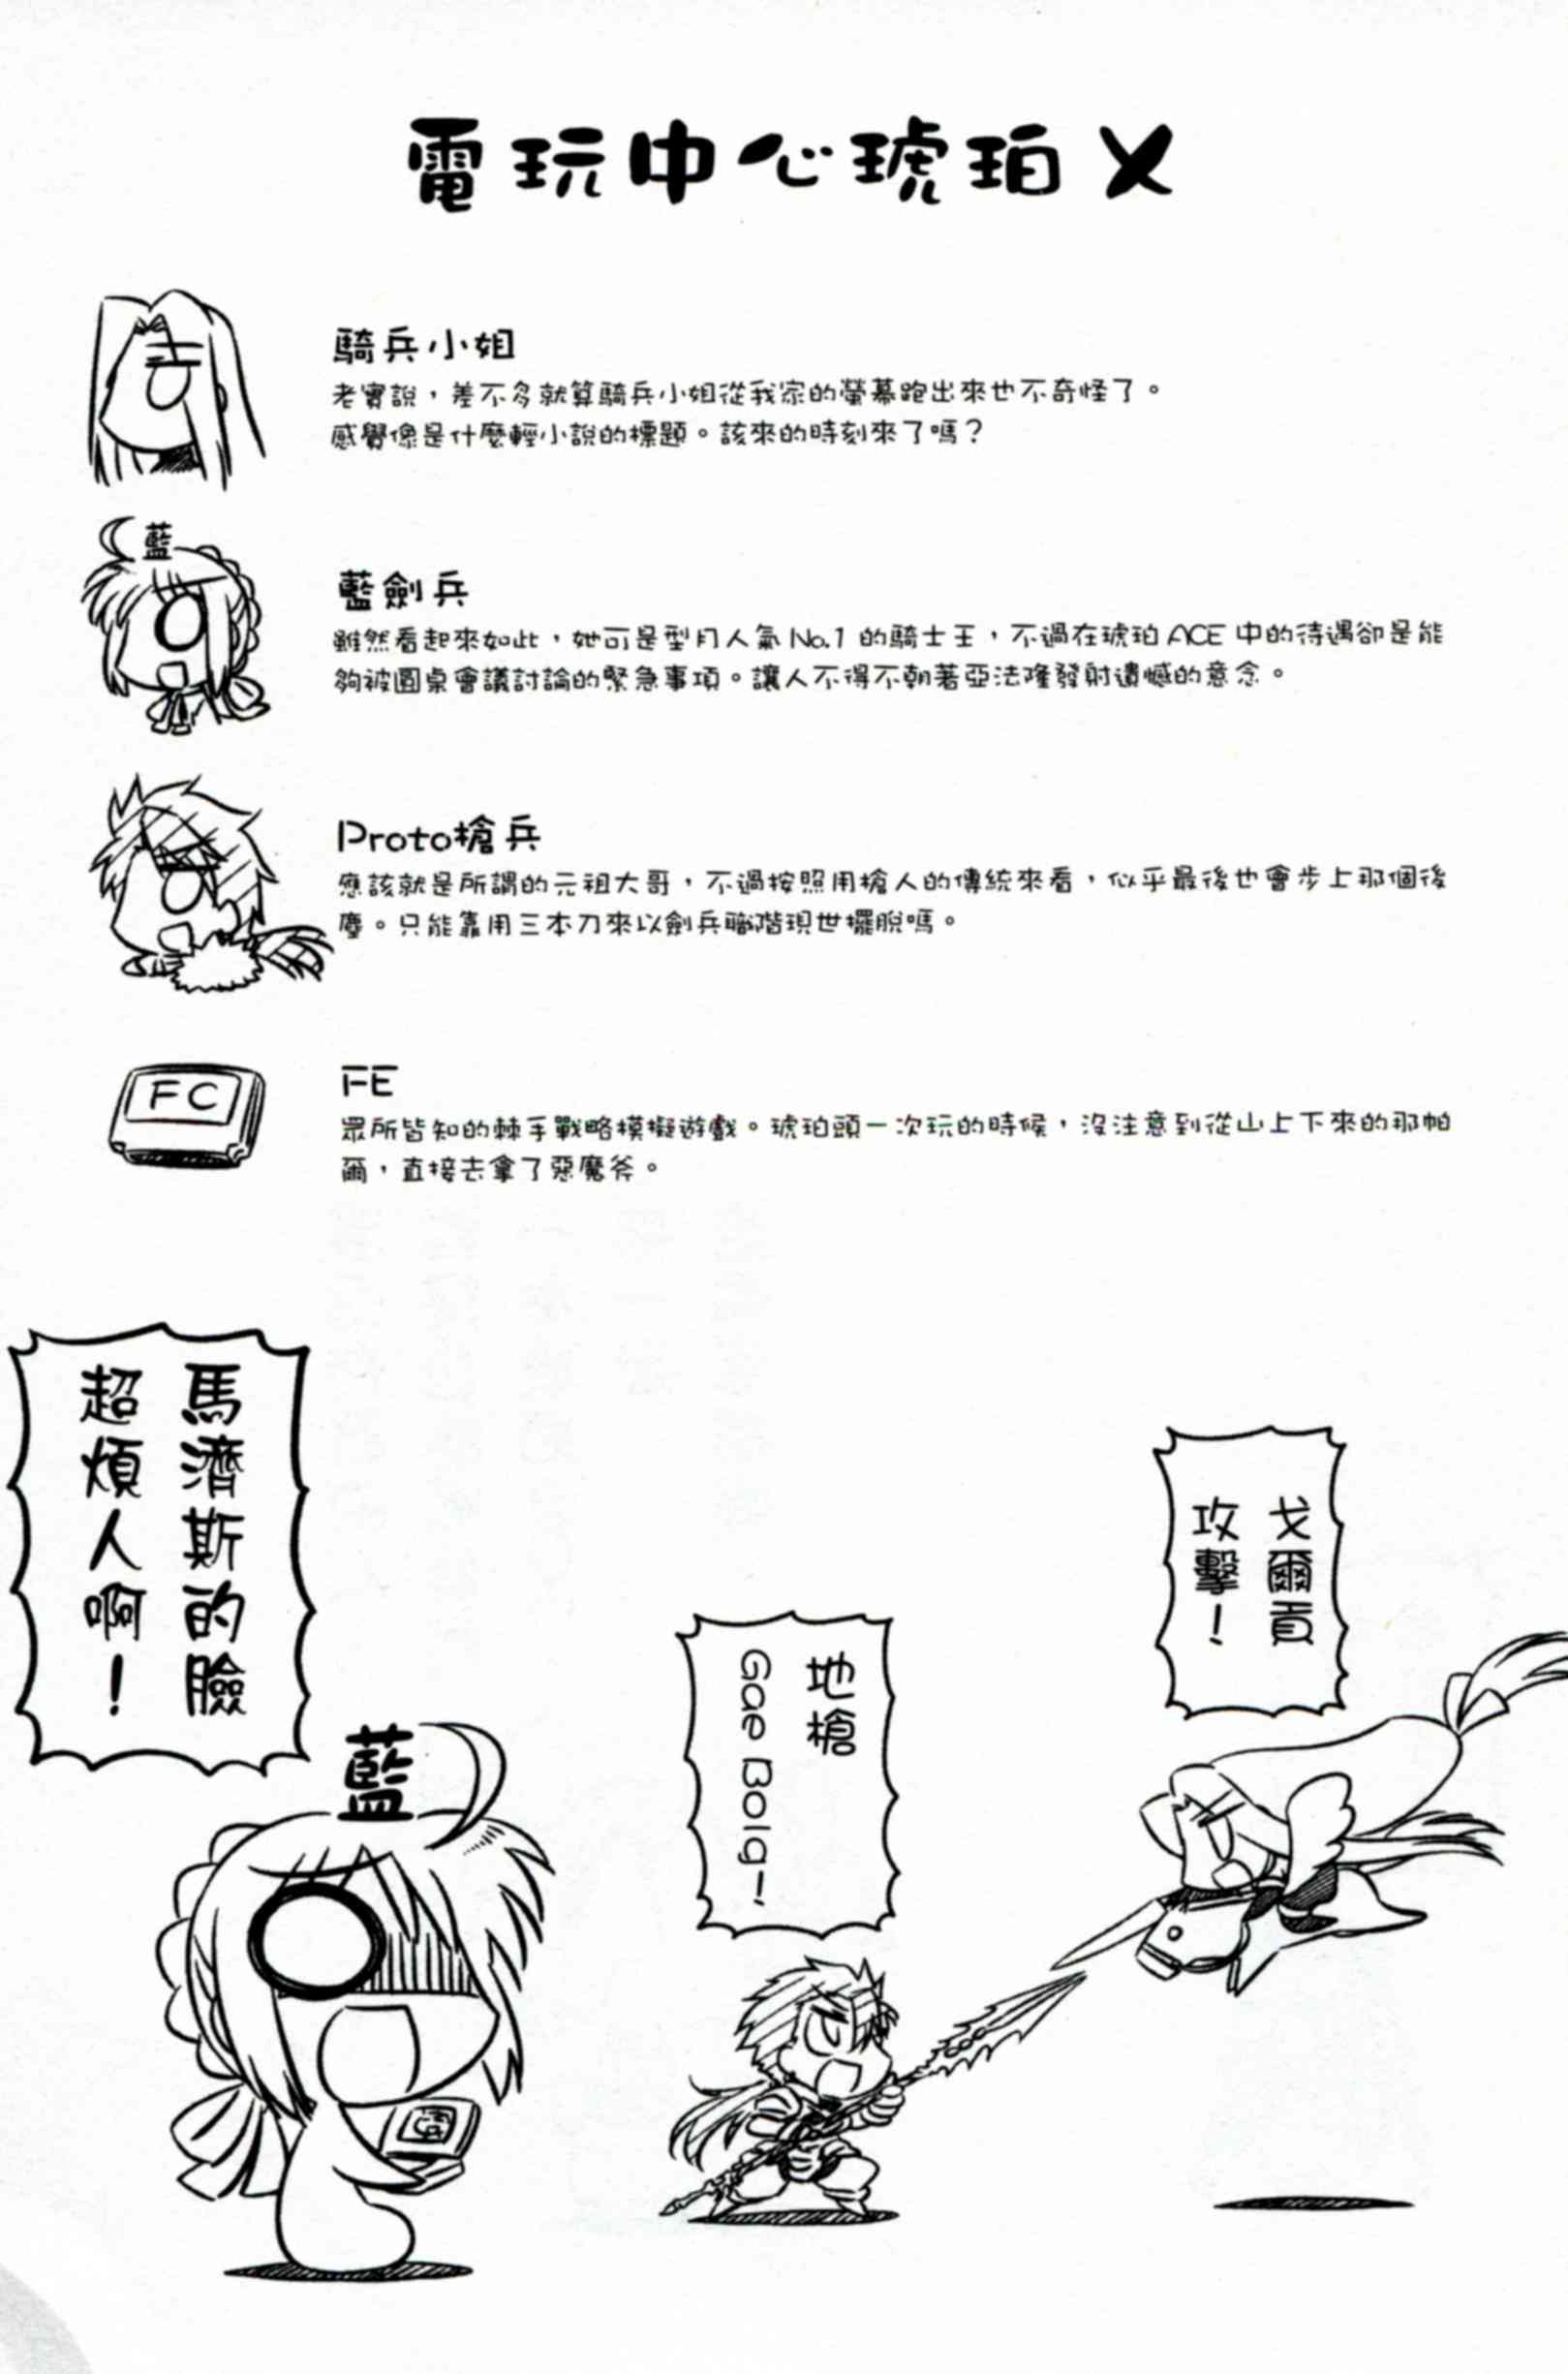 電玩中心琥珀X
騎兵小姐
老實說，差不多就算騎兵小姐從我家的螢幕跑出來也不奇怪了。
感覺像是什麼輕小說的標題。該來的時刻來了嗎？
藍
藍劍兵
雖然看起來如此，她可是型月人氣No.1 的騎士王，不過在琥珀ACE 中的待遇卻是能
夠被圓桌會議討論的緊急事項。讓人不得不朝著亞法隆發射遺憾的意念。
Proto槍兵
應該就是所謂的元祖大哥，不過按照用槍人的傳統來看，似乎最後也會步上那個後
塵。只能靠用三本刀來以劍兵職階現世擺脫嗎。
FC
FE
眾所皆知的棘手戰略模擬遊戲。琥珀頭一次玩的時候，沒注意到從山上下來的那帕
爾，直接去拿了惡魔斧。
戈爾貢
攻擊！
地槍
Gae Bolg！
馬濟斯的臉
超煩人啊！
藍